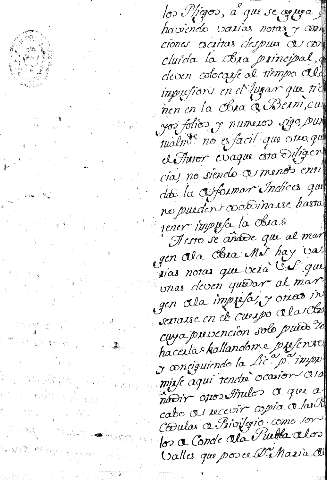 los Pligos, a q.e se agrega q.e
haviendo varias notas y adi
ciones escritas despues de con
cluida la obra principal, q.e
deven colocarse al tiempo de la
impresion en el lugar que tie
nen en la obra de Berni, cu
yos folios y numeros sigo pun
tualm.te no es facil que otro que
el Autor evaque esta diligen
cia; no siendo de menos enti
dad la de formar Indices que
no pueden coordinarse hasta
tener impresa la obra.
A esto se añade que al mar
gen de la obra Ms. hay va
rias notas que verá V.S. que
unas deven quedar al mar
gen de la impresa, y otras in
sertarse en el cuerpo de la obra
cuya prevencion solo puedo
hacerla hallandome presente
y consiguiendo la Lic.a p.a impri
mirse aqui tendré ocasion de a
ñadir otros titulos de que a
cabo de recivir copia de las R.s
Cedulas de Privilegio: como son
los de Conde de la Puebla de los
Valles que posee D.a Maria de